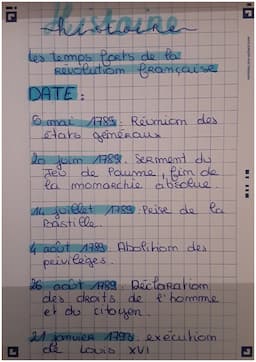 histoire
histoire
Les Temps forts de la
Révolution française
DATE :
5 mai 1789. Réunion des
états généraux
20 juin 1789. Serment du
Jeu de Paume, fin de
la monarchie absolue.
14 juillet 1789. Prise de la
Bastille.
4 août 1789. Abolitiom des
privilèges.
26 août 1789. Déclaration
des droits de l'homme
et du citoyen.
21 janvier 1793. exécution
de Louis XVI